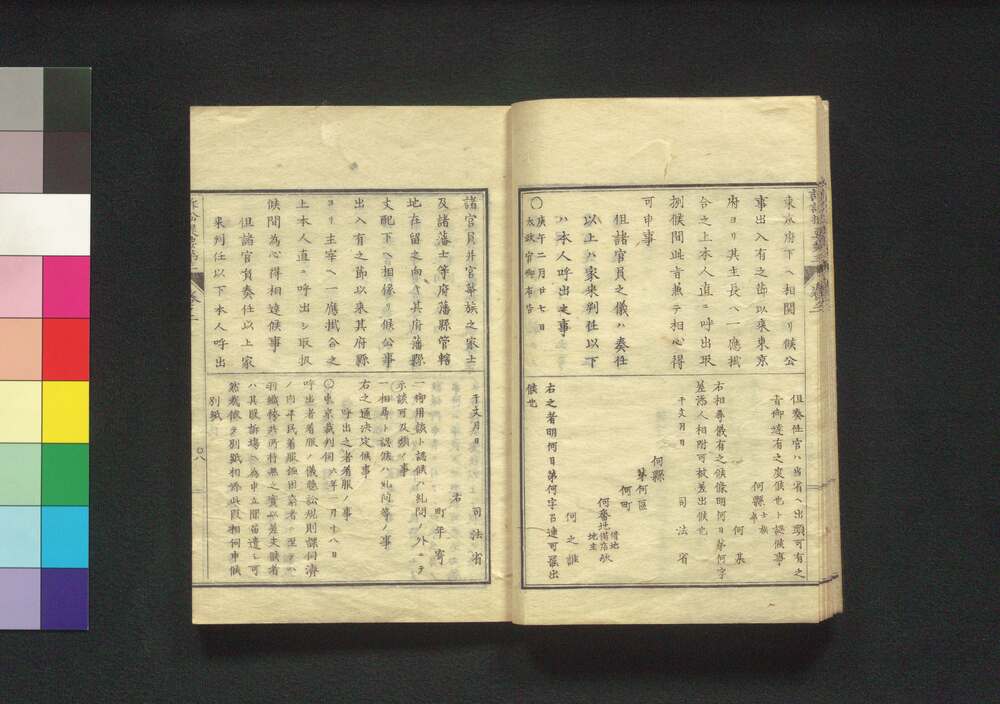 東京府下ヘ相関リ候公
事出入有之節以来東京
府ヨリ其主長ヘ一應掛
合之上本人直ニ呼出取
捌候間此旨兼テ相心得
可申事
但諸官員之儀ハ奏任
以上ハ家来判任以下
ハ本人呼出之事
〇庚午二月廿七日
太政官御布告
但奏任官ハ当省ヘ出頭可有之
旨御達有之度候也ト認候事
何縣士族
何某
右相尋儀有之候條明何日第何字
差添人相附可被差出候也
干支月日 司法省
何縣
第何區
何町
何番地借地借店地主
何之誰
右之者明何日第何字召連可罷出
候也
諸官員并官華族之家士
及諸藩士等府藩縣管轄
地在留之向ニテ其府藩縣
支配下ヘ相係リ候公事
出入有之節以来其府縣
ヨリ主宰ヘ一應掛合之
上本人直ニ呼出シ取扱
候間為心得相達候事
但諸官員奏任以上家
来判任以下本人呼出
干支月日 司法省
右
町年寄
一御用談ト認候ハ糺問ノ外ニテ
示談可及類ノ事
一相尋ト認候ハ糺問等ノ事
右之通決定候事
呼出之者着服ノ事
〇東京裁判伺六年二月十八日
呼出者着服ノ儀聴訟規則課伺済
ノ内平民着服
ハ其服訴場ヘ為申立聞苗遣シ可
然哉依テ別紙相添此段相伺申候
別紙
〇八